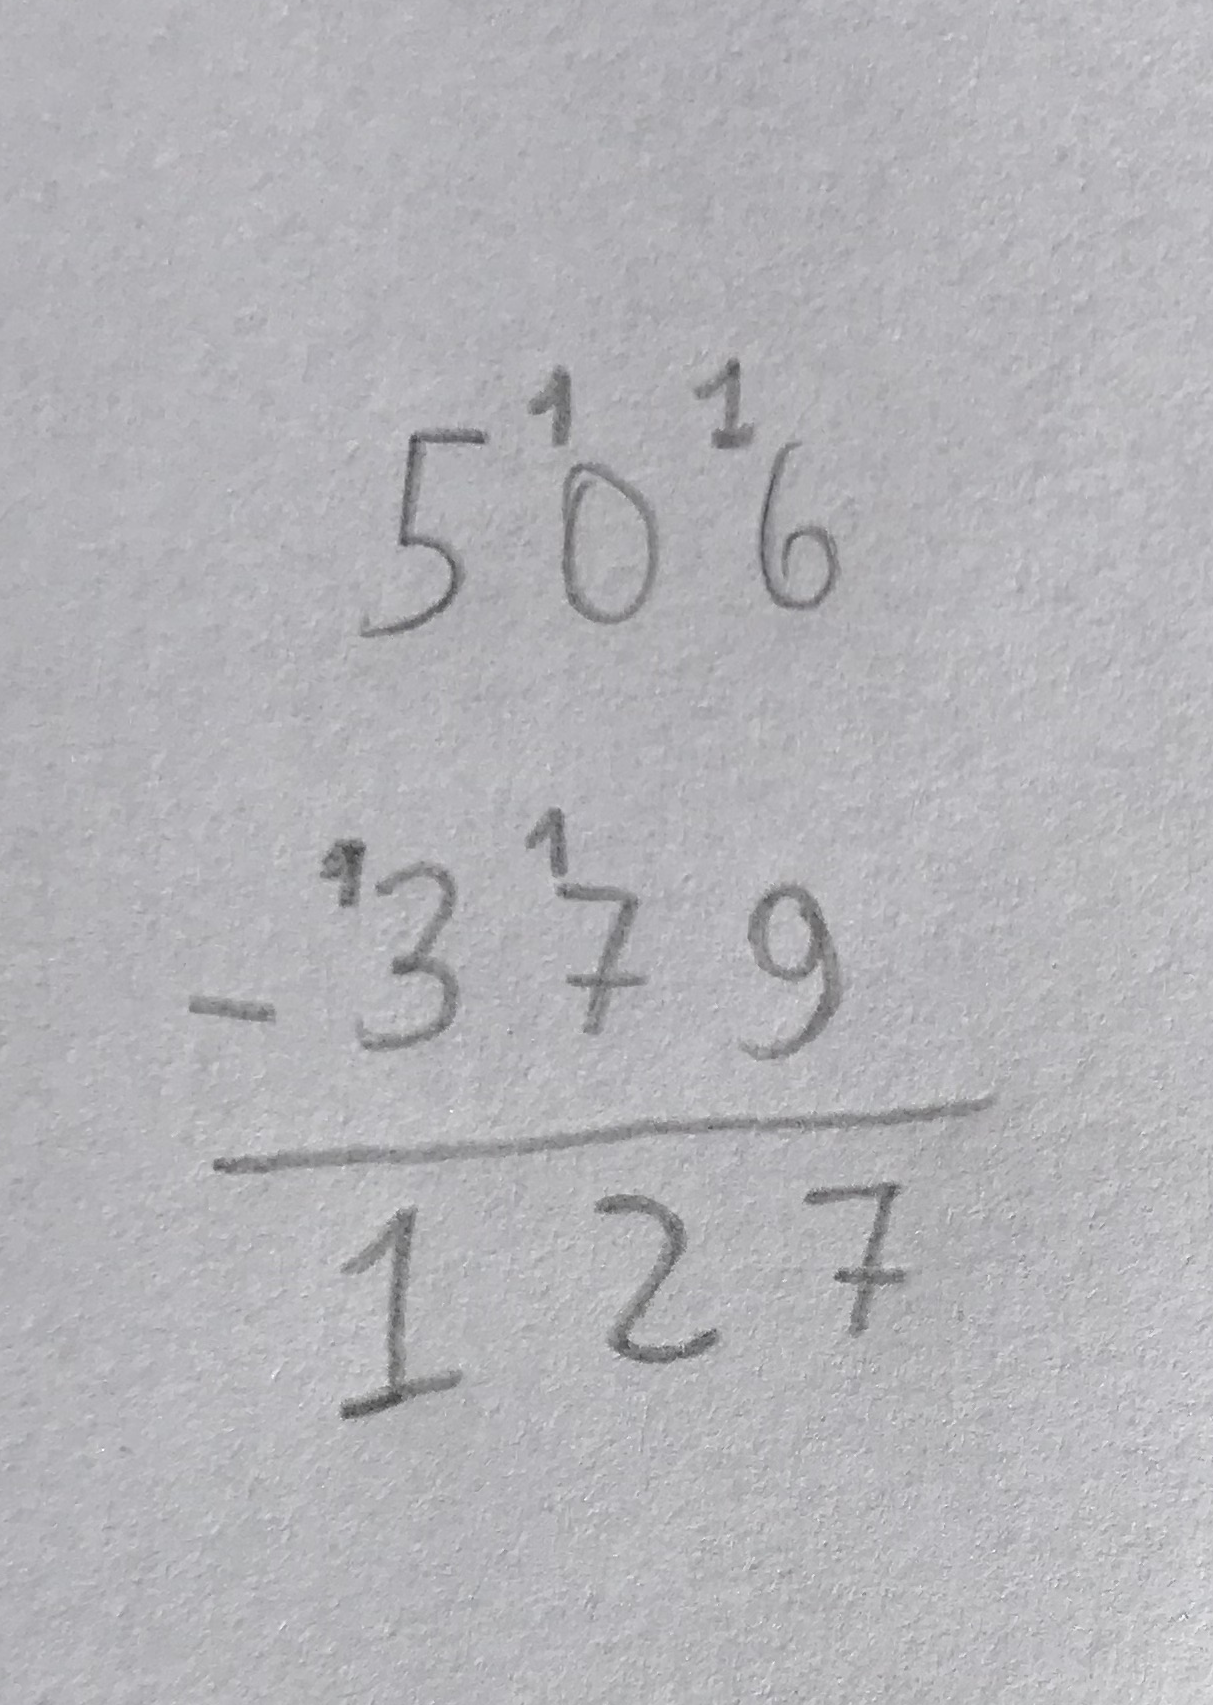 5 ¹0 ¹6
- ¹3 ¹7 9
1 2 7